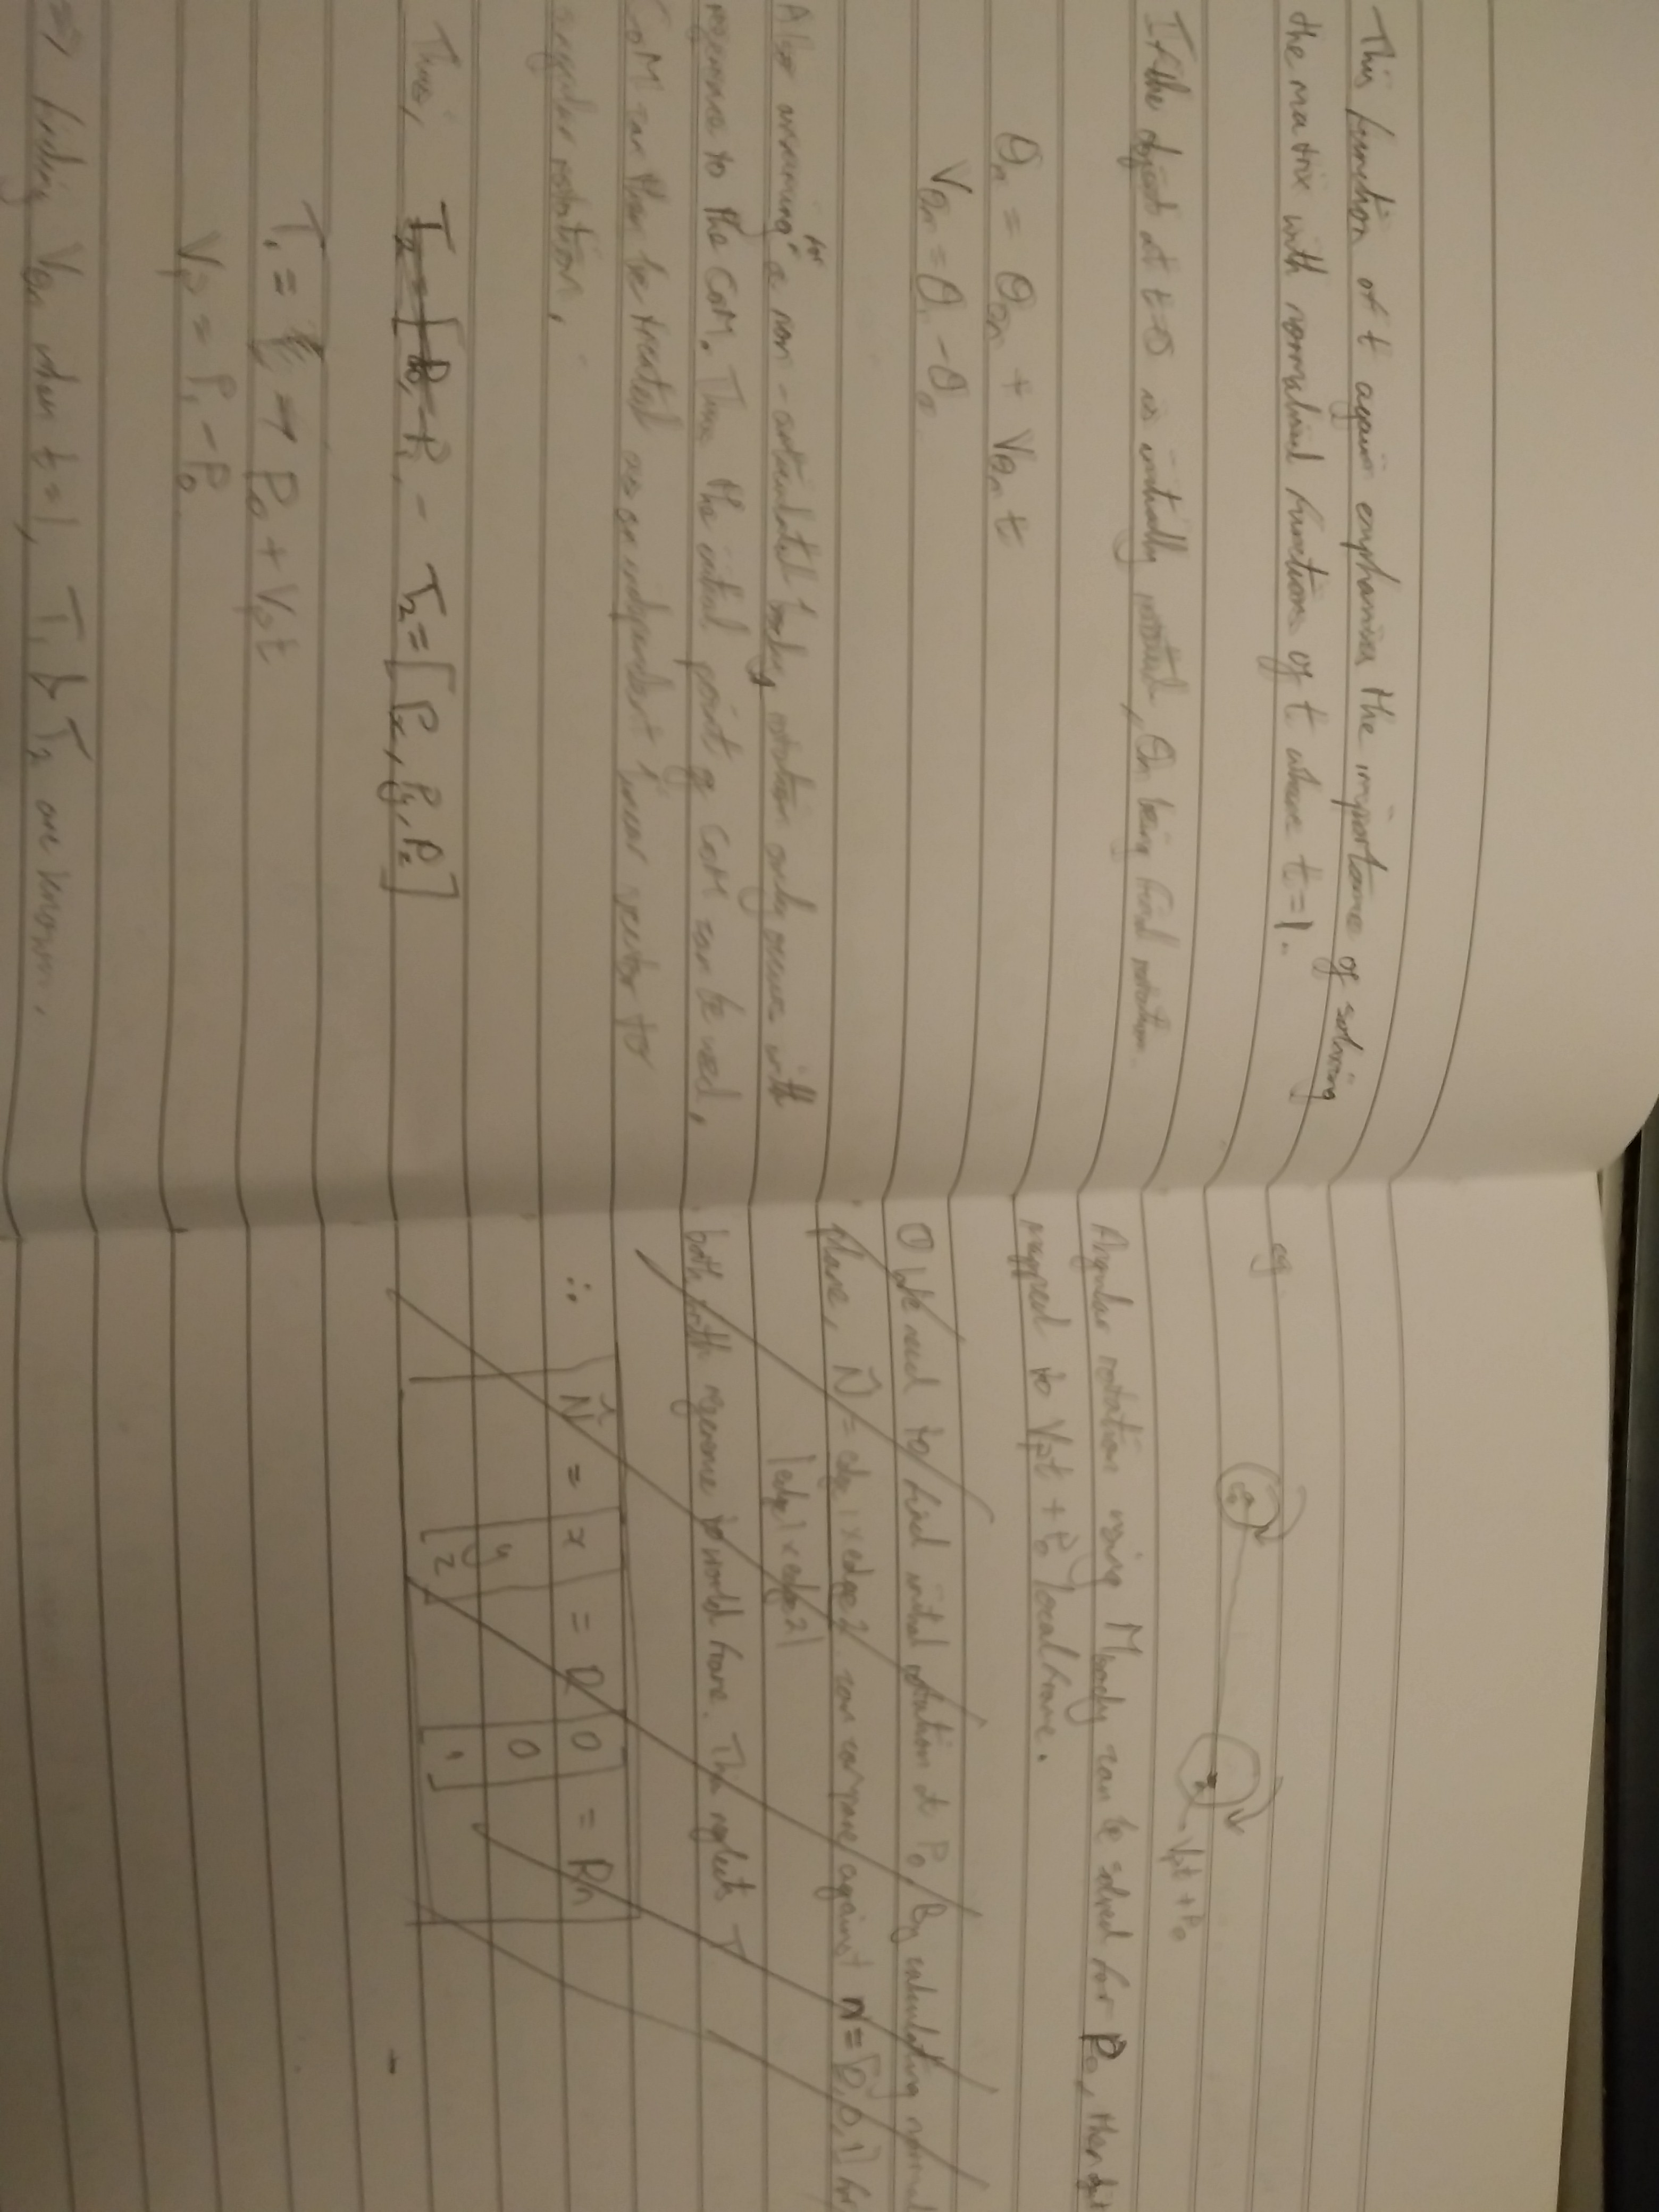 This function of t again emphasises the importance of solving
the matrix with normalised functions of t where t=1.
If the object at t=0 is initially rotated, θn being final rotation.
θn = θ0n + Vθn t
Vθn = θ1 - θ0
Also assuming for a non-articulated body, rotation only occurs with
reference to the CoM. Thus the initial point of CoM can be used.
CoM can then be treated as an independent linear vector to
angular rotation.
Thus, T2 = [P0, P1, - T2 = [Px, Py, Pz]
T1 = P0 + Vpt
Vp = P1 - P0
=> finding Vθn when t=1, T1 & T2 are known.
eg
Vpt + P0
Angular rotation using Mbody can be solved for P0, then
mapped to Vpt + P0 local frame.
① We need to find initial rotation at P0. By calculating normal
plane, N̂ = edge1 x edge2 can compare against n = [0,0,1]
|edge1 x edge2|
both with reference to world frame. This neglects T
∴ N̂ = [x y z] = R [0 0 1] = Rn